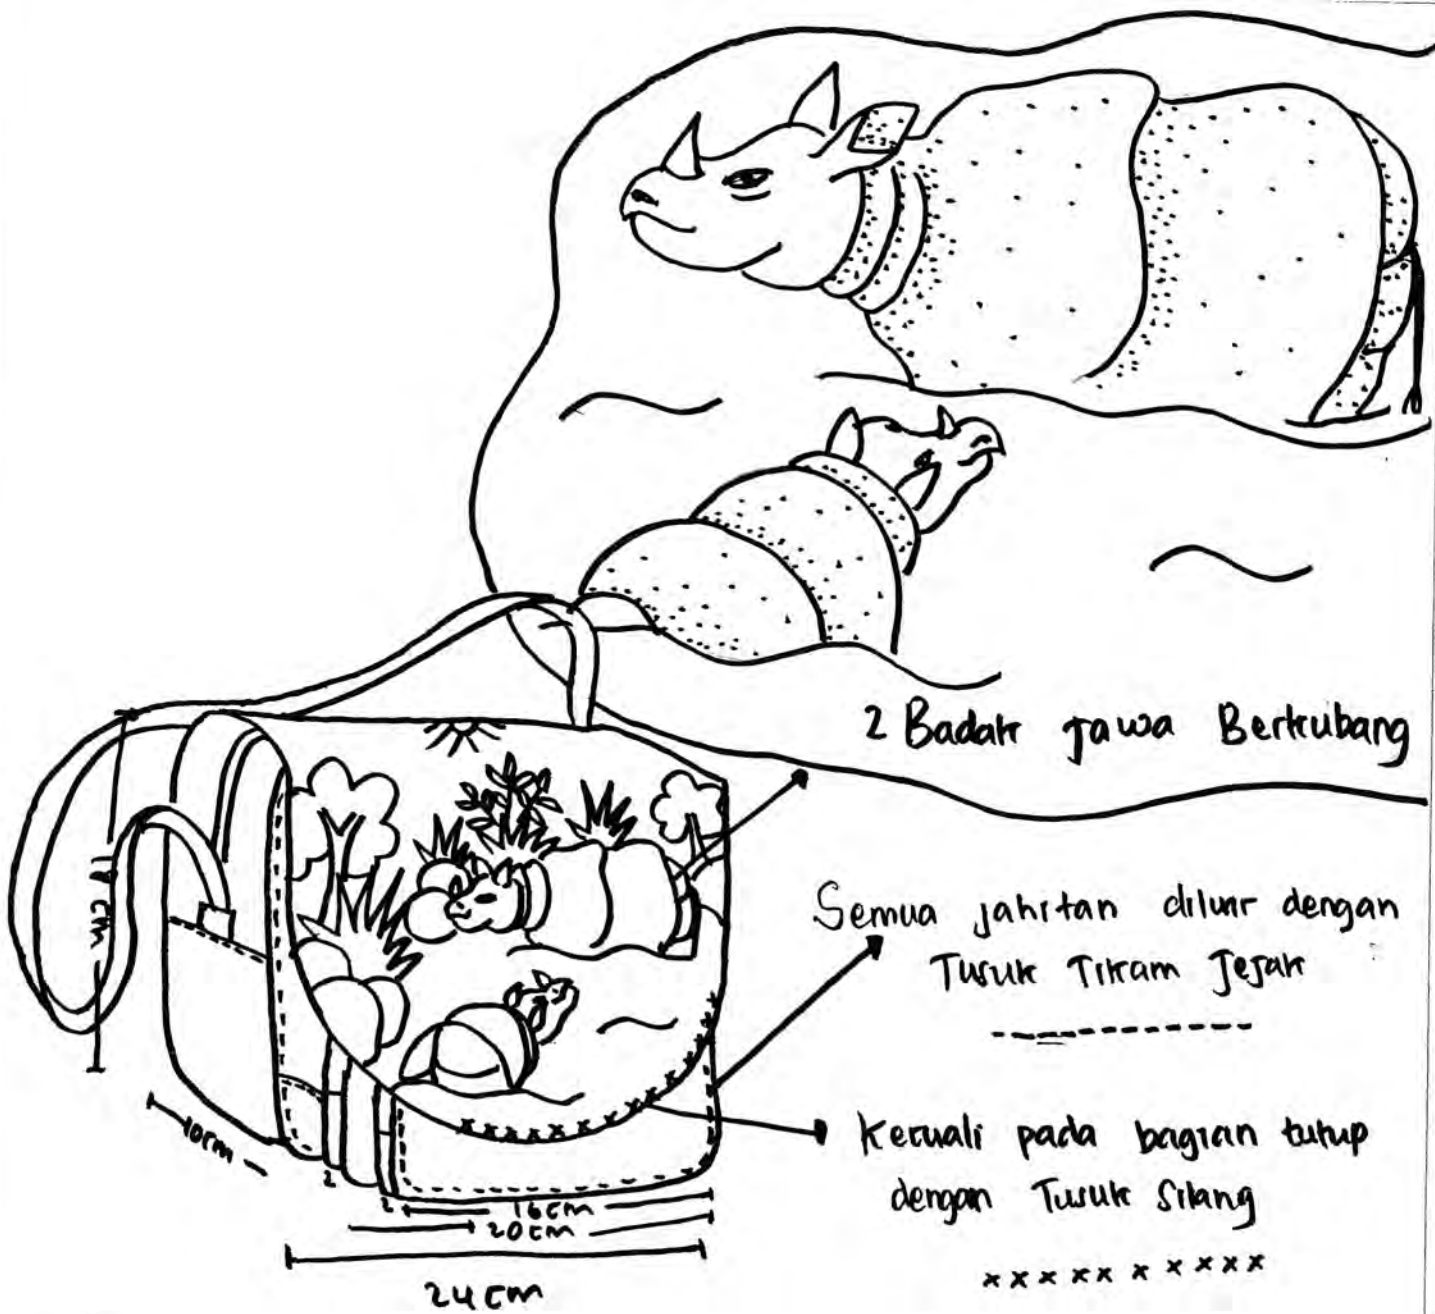 2 Badak Jawa Berkubang
Semua jahitan diluar dengan
Tusuk Tikam Jejak
Kecuali pada bagian tutup
dengan Tusuk Silang
xxxxxxxxxxx
10cm
2
2
16cm
20cm
24cm